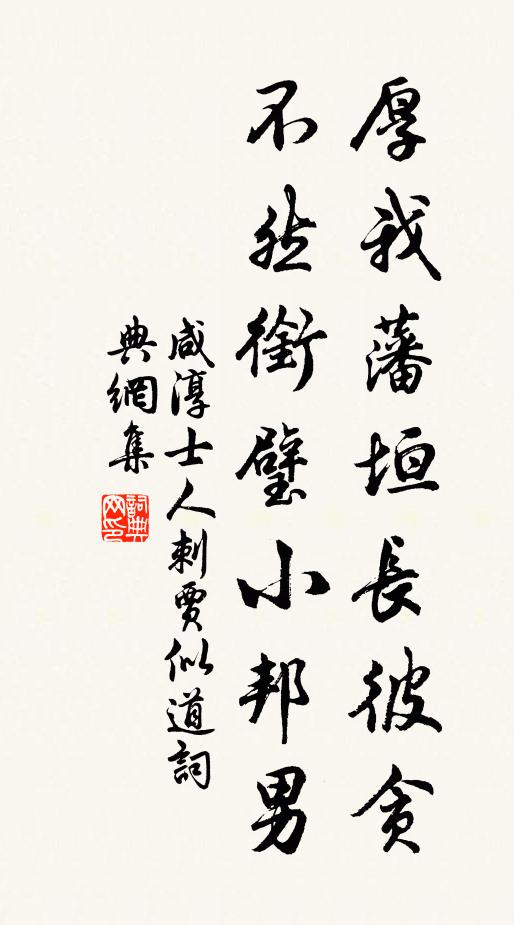 厚我藩垣長彼貪
不然銜璧小邦男
咸淳士人刺賈似道詞
典網集
詞典網印